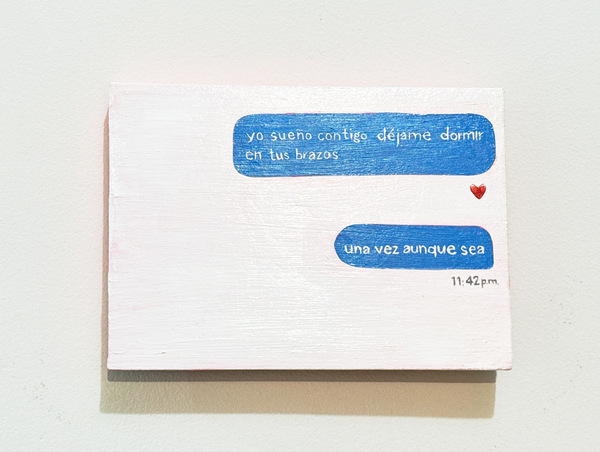 yo sueño contigo déjame dormir
en tus brazos
una vez aunque sea
11:42 p.m.